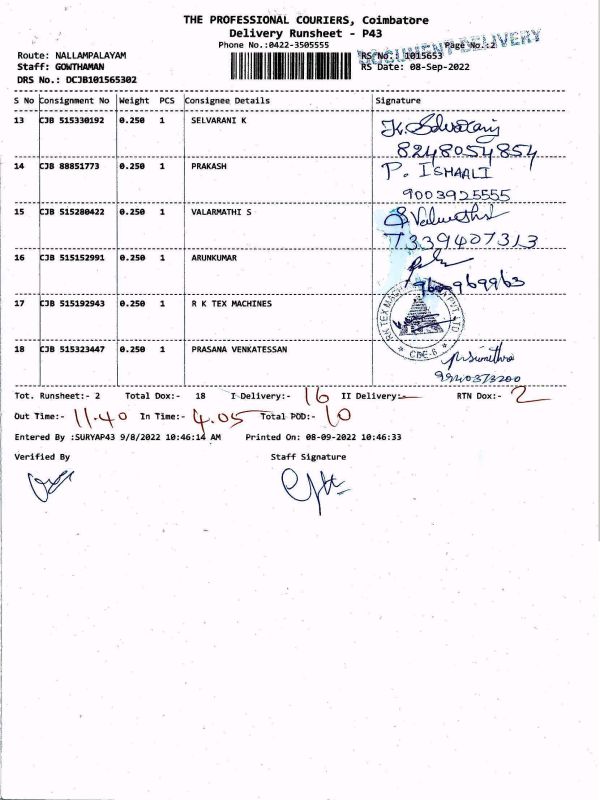 THE PROFESSIONAL COURIERS, Coimbatore
Delivery Runsheet - P43
Phone No.:0422-3505555
Page No.:2
DOCUMENT DELIVERY
Route: NALLAMPALAYAM
RS No.: 1015653
Staff: GOWTHAMAN
RS Date: 08-Sep-2022
DRS No.: DCJB101565302
S No Consignment No Weight PCS Consignee Details Signature
13 CJB 515330192 0.250 1 SELVARANI K
8248054854
14 CJB 88851773 0.250 1 PRAKASH P. ISHAALI
9003925555
15 CJB 515280422 0.250 1 VALARMATHI S
7339407313
16 CJB 515152991 0.250 1 ARUNKUMAR
9600969963
17 CJB 515192943 0.250 1 R K TEX MACHINES
CBE-6
18 CJB 515323447 0.250 1 PRASANA VENKATESSAN
9940373200
Tot. Runsheet:- 2 Total Dox:- 18 I Delivery:- 16 II Delivery:- RTN Dox:- 2
Out Time:- 11.40 In Time:- 4.05 Total POD:- 10
Entered By :SURYAP43 9/8/2022 10:46:14 AM Printed On: 08-09-2022 10:46:33
Verified By Staff Signature